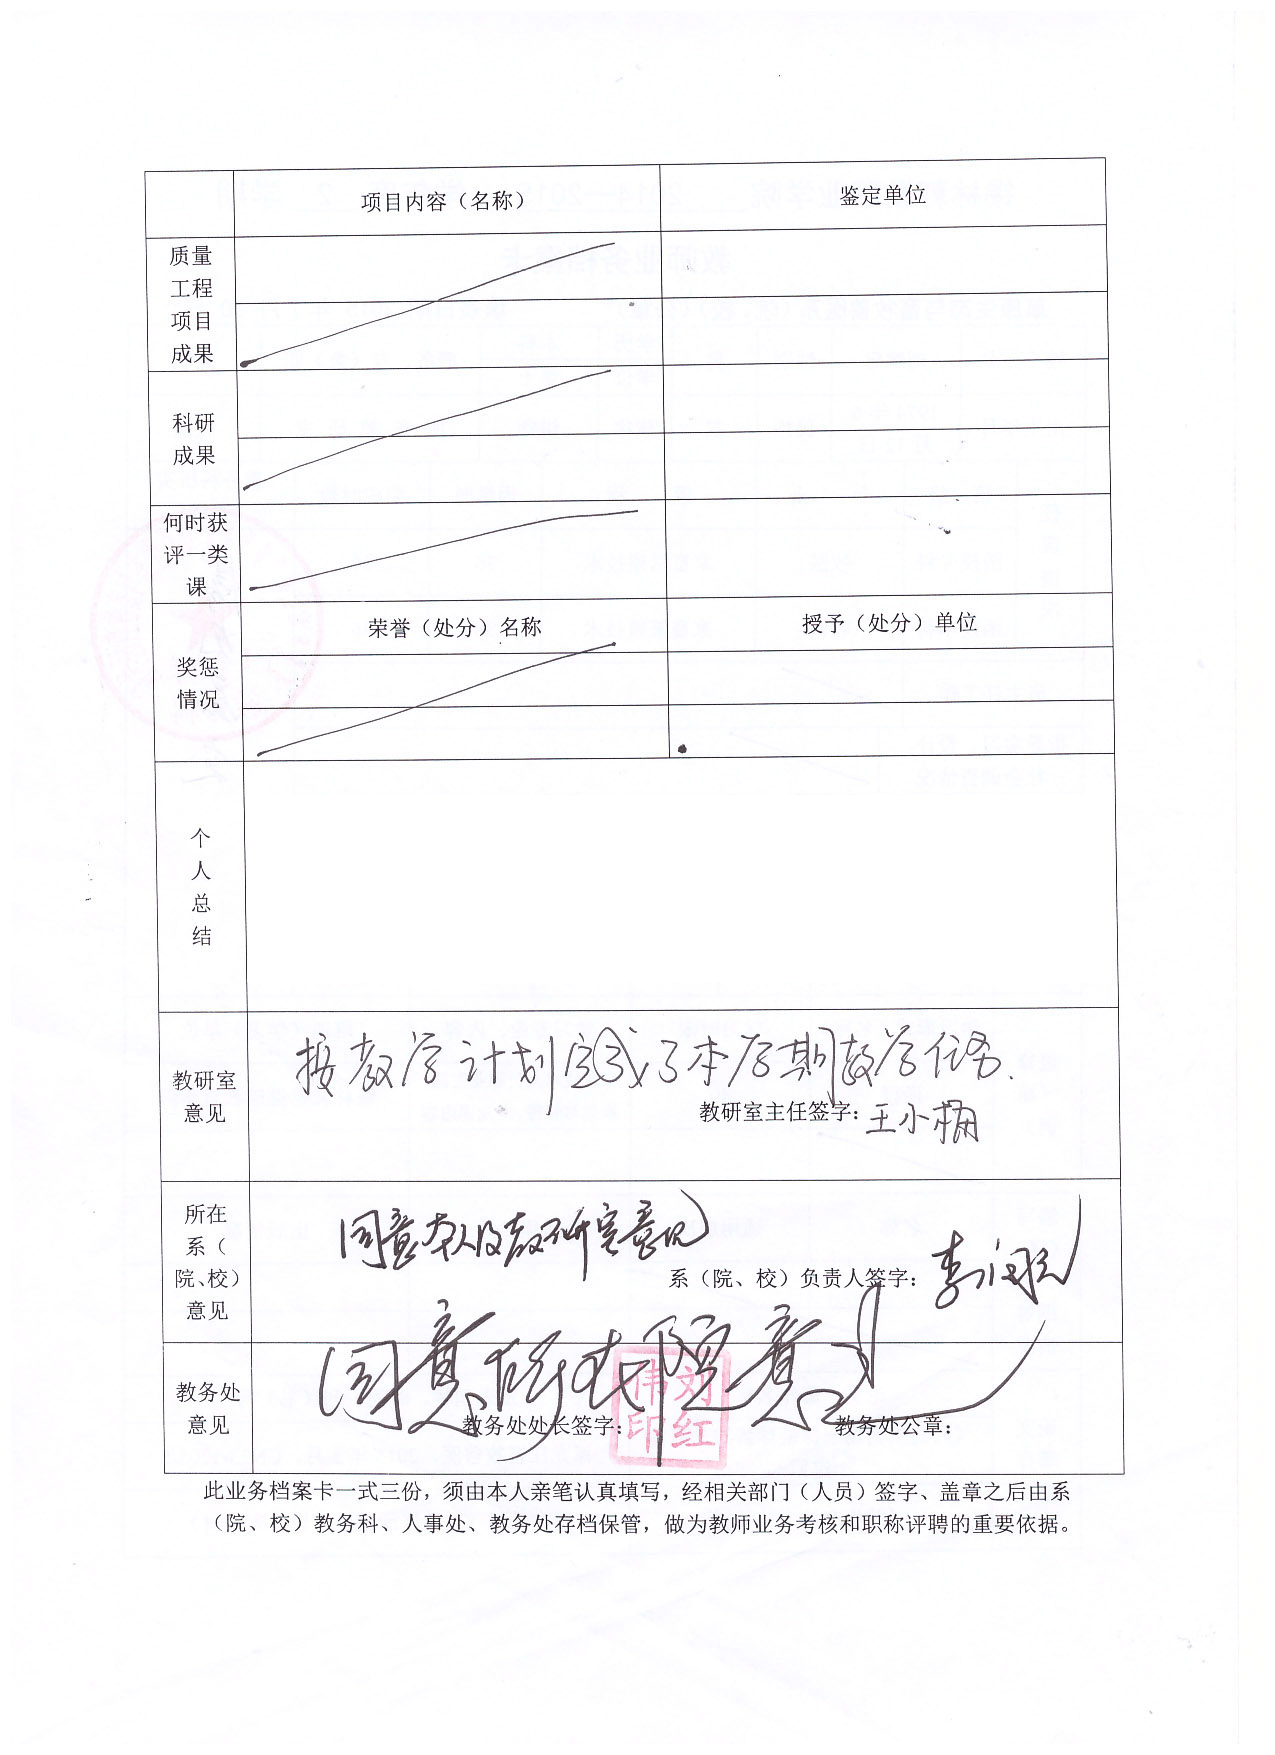 项目内容（名称）
鉴定单位
质量
工程
项目
成果
科研
成果
何时获
评一类
课
奖惩
情况
荣誉（处分）名称
授予（处分）单位
个
人
总
结
教研室
意见
按教学计划完成了本学期教学任务.
教研室主任签字：王小楠
所在
系（
院、校）
意见
同意本人及教研室意见
系（院、校）负责人签字：李
教务处
意见
同意 院意见
教务处处长签字：
刘红伟印
教务处公章：
此业务档案卡一式三份，须由本人亲笔认真填写，经相关部门（人员）签字、盖章之后由系
（院、校）教务科、人事处、教务处存档保管，做为教师业务考核和职称评聘的重要依据。